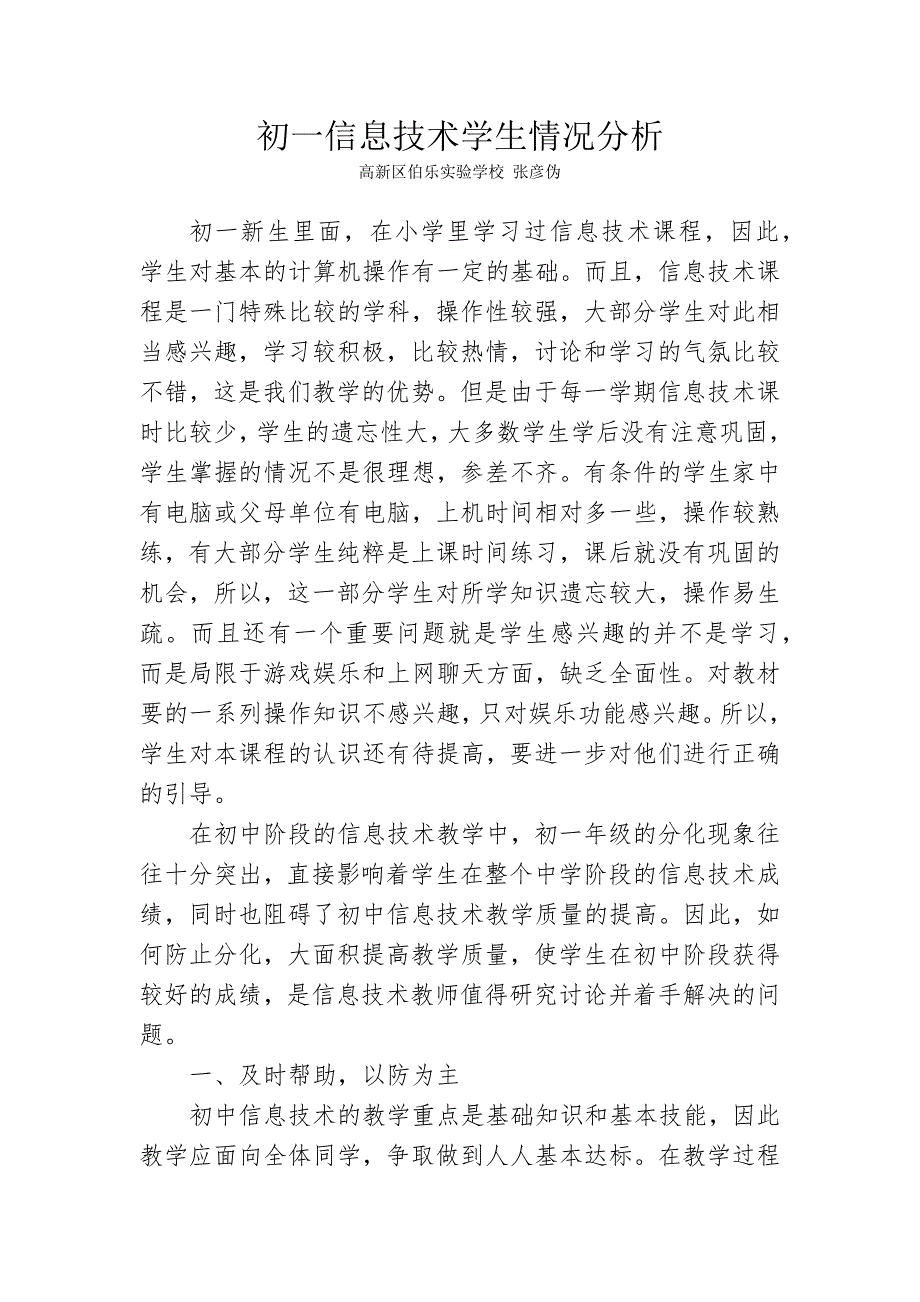 初一信息技术学生情况分析
高新区伯乐实验学校 张彦伪
初一新生里面，在小学里学习过信息技术课程，因此，
学生对基本的计算机操作有一定的基础。而且，信息技术课
程是一门特殊比较的学科，操作性较强，大部分学生对此相
当感兴趣，学习较积极，比较热情，讨论和学习的气氛比较
不错，这是我们教学的优势。但是由于每一学期信息技术课
时比较少，学生的遗忘性大，大多数学生学后没有注意巩固，
学生掌握的情况不是很理想，参差不齐。有条件的学生家中
有电脑或父母单位有电脑，上机时间相对多一些，操作较熟
练，有大部分学生纯粹是上课时间练习，课后就没有巩固的
机会，所以，这一部分学生对所学知识遗忘较大，操作易生
疏。而且还有一个重要问题就是学生感兴趣的并不是学习，
而是局限于游戏娱乐和上网聊天方面，缺乏全面性。对教材
要的一系列操作知识不感兴趣，只对娱乐功能感兴趣。所以，
学生对本课程的认识还有待提高，要进一步对他们进行正确
的引导。
在初中阶段的信息技术教学中，初一年级的分化现象往
往十分突出，直接影响着学生在整个中学阶段的信息技术成
绩，同时也阻碍了初中信息技术教学质量的提高。因此，如
何防止分化，大面积提高教学质量，使学生在初中阶段获得
较好的成绩，是信息技术教师值得研究讨论并着手解决的问
题。
一、及时帮助，以防为主
初中信息技术的教学重点是基础知识和基本技能，因此
教学应面向全体同学，争取做到人人基本达标。在教学过程